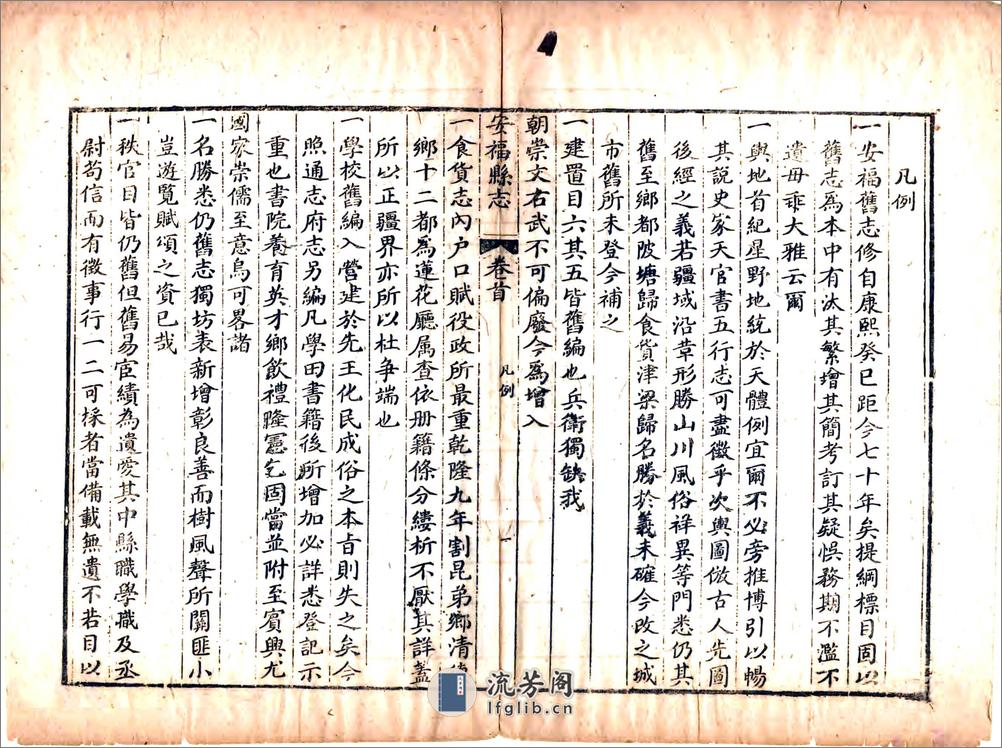 凡例
一安福舊志修自康熙癸巳距今七十年矣提綱標目固以
舊志爲本中有汰其繁增其簡考訂其疑悞務期不濫不
遺毋乖大雅云爾
一輿地首紀星野地統於天體例宜爾不必旁推博引以暢
其說史家天官書五行志可盡徵乎次輿圖倣古人先圖
後經之義若疆域沿革形勝山川風俗祥異等門悉仍其
舊至鄉都陂塘歸食貨津梁歸名勝於義未確今改之城
市舊所未登今補之
一建置目六其五皆舊編也兵衛獨缺我
朝崇文右武不可偏廢今爲增入
安福縣志
卷首
凡例
一
一食貨志內户口賦役政所最重乾隆九年割昆弟鄉清
鄉十二都爲蓮花廳属查依册籍條分縷析不厭其詳蓋
所以正疆界亦所以杜争端也
一學校舊編入營建於先王化民成俗之本旨則失之矣今
照通志府志另編凡學田書籍後所增加必詳悉登記示
重也書院養育英才鄉飲禮隆憲乞固當並附至賓興尤
國家崇儒至意烏可畧諸
一名勝悉仍舊志獨坊表新增彰良善而樹風聲所關匪小
豈遊覽賦頌之資已哉
一秩官目皆仍舊但舊易宦績為遺愛其中縣職學職及丞
尉苟信而有徵事行一二可採者當備載無遺不若目以
流芳阁
lfglib.cn